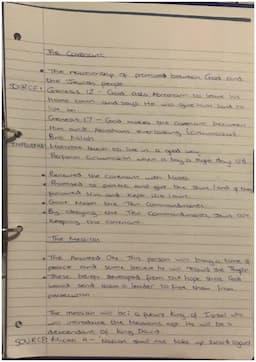 The Covenant
• The relationship of promised between God and
the Jewish people
SOURCE: Genesis 12 - God asks Abraham to leave his
home town and says He will give him land to
live on
Genesis 17 - God makes the covenant between
Him and Abraham everlasting (circumcision)
Brit Milah
INFLUENCE: Motivates Jews to live in a good way
Perform circumcision when a boy is 8 days old
• Renewed the covenant with Moses
• Promised to protect and give the Jews land if they
followed Him and kept His laws
• Gave Moses the Ten Commandments
• By obeying the Ten Commandments Jews are
keeping the covenant
The Messiah
• The Anointed One. This person will bring a time of
peace and some believe he will rebuild the Temple
• These beliefs developed from the hope that God
would send down a leader to free them from
persecution
The messiah will be a future king of Israel who
will introduce the Messianic age. He will be a
descendant of King David
SOURCE: Micah 4 - Nation shall not take up sword against